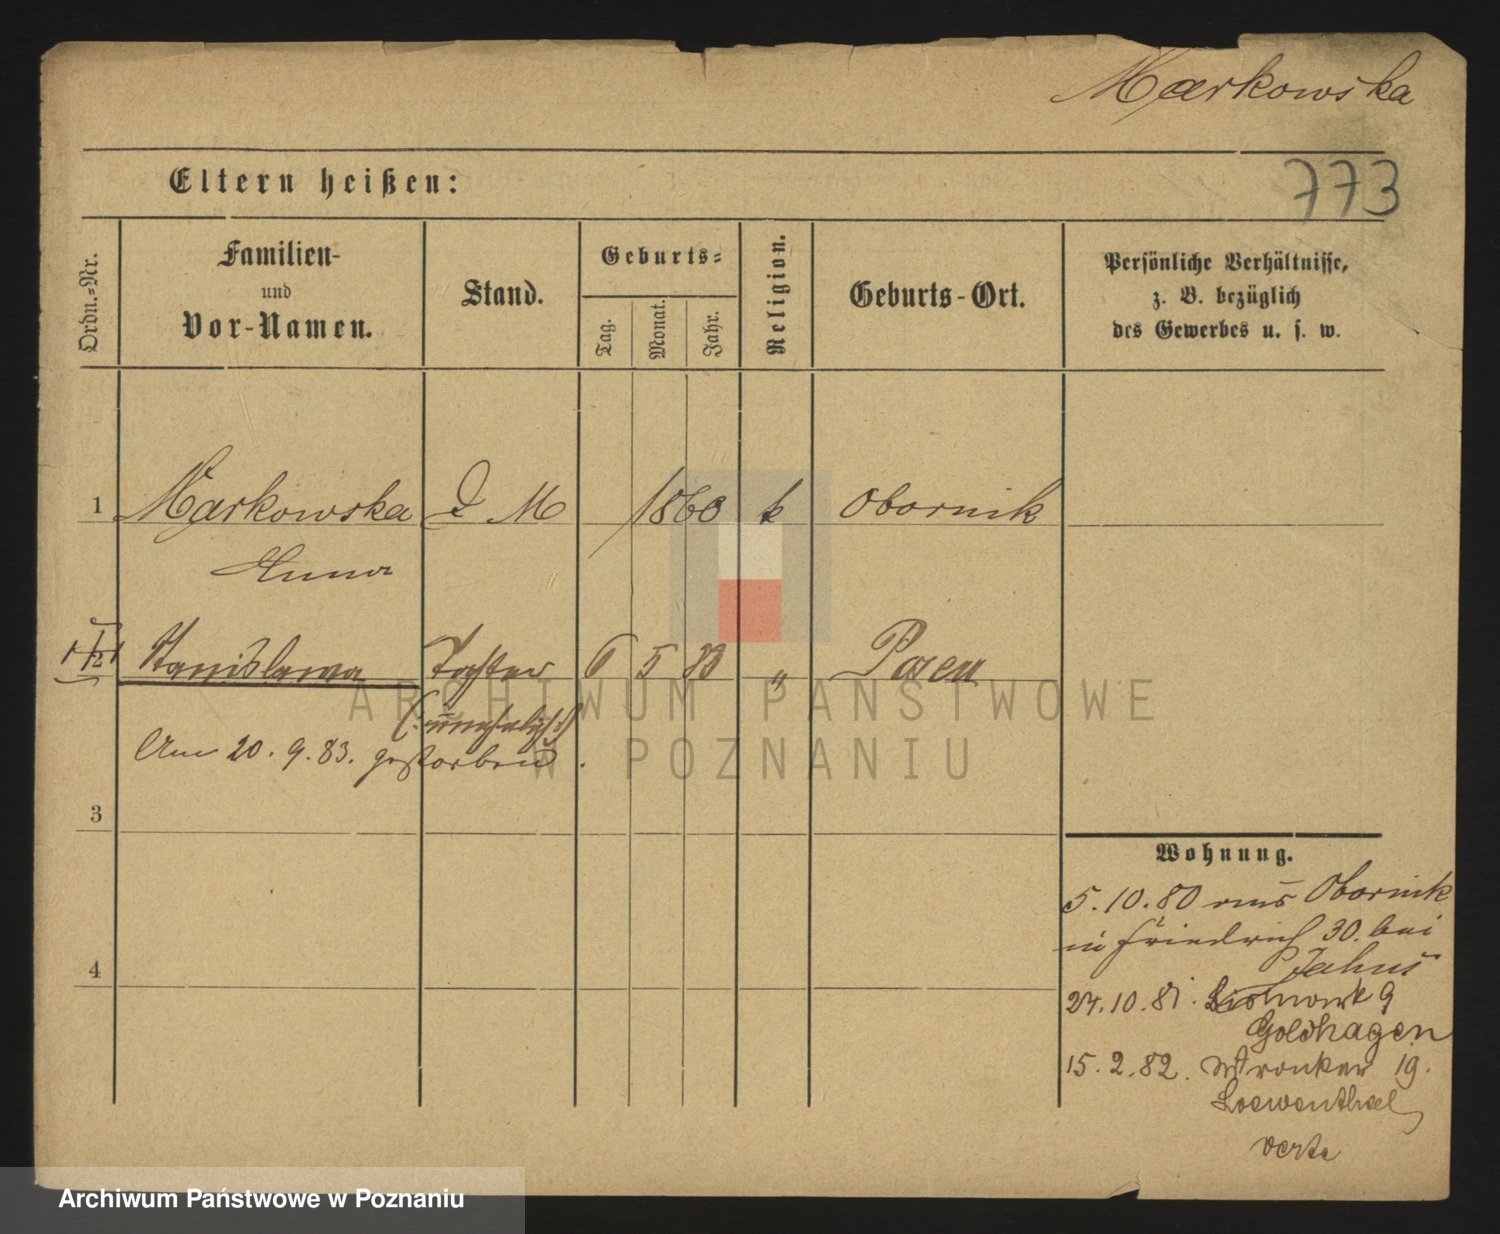 Markowska
Eltern heißen:
773
Ordn.-Nr.
Familien-
und
Vor-Namen.
Stand.
Geburts-
Tag.
Monat.
Jahr.
Religion.
Geburts-Ort.
Persönliche Verhältnisse,
z. B. bezüglich
des Gewerbes u. s. w.
1 Markowska D M 1860 k Obornik
Anna
2 Stanislawa Tochter 6 5 83 " Posen
(unehelich)
Am 20. 9. 83. gestorben.
3
Wohnung.
5. 10. 80 aus Obornik
in Friedrich 30. bei
Jahns
4
24. 10. 81. Bismark 9
Goldhagen
15. 2. 82. Wronker 19.
Loewenthal
verte
ARCHIWUM PAŃSTWOWE
W POZNANIU
Archiwum Państwowe w Poznaniu